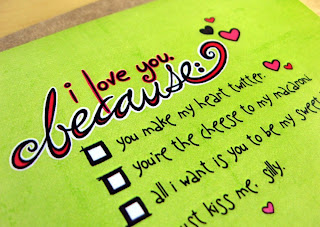 i love you.
because:
you make my heart twitter.
you're the cheese to my macaroni.
all i want is you to be my sweet
just kiss me. silly.